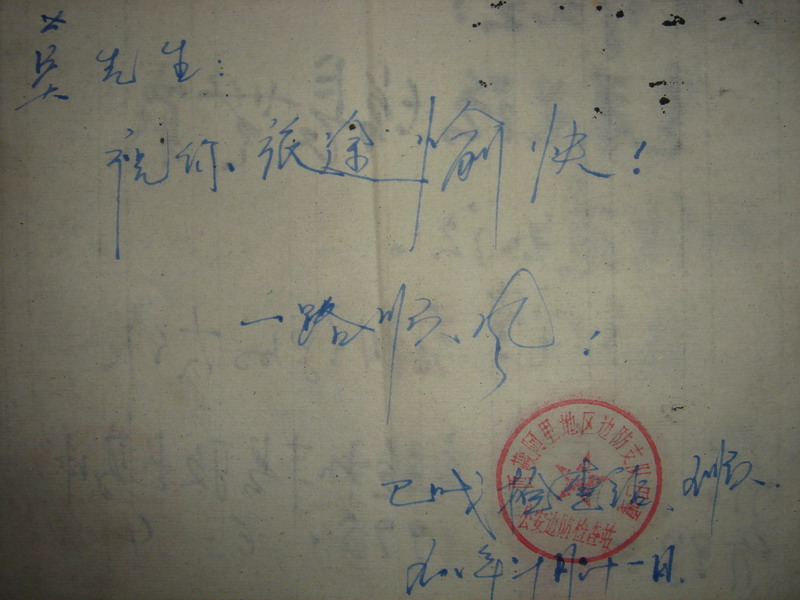 莫先生:
祝你旅途愉快!
一路顺风!
藏阿里地区边防支队
公安边防检查站
检查站
年 月 十一日.